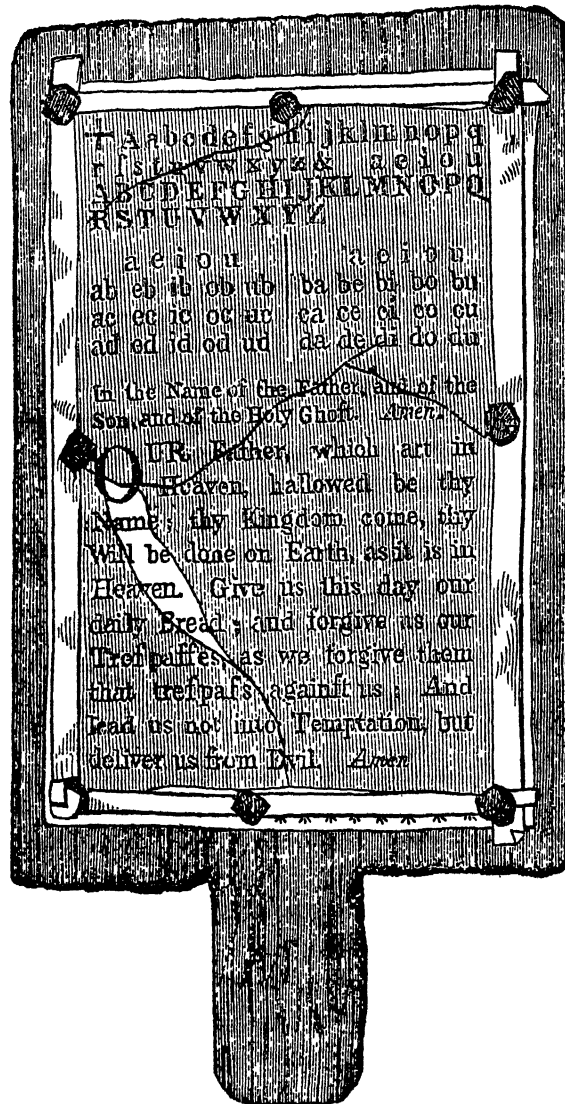 + A a b c d e f g h i j k l m n o p q
r ſ s t u v w x y z & a e i o u
A B C D E F G H I J K L M N O P Q
R S T U V W X Y Z
a e i o u a e i o u
ab eb ib ob ub ba be bi bo bu
ac ec ic oc uc ca ce ci co cu
ad ed id od ud da de di do du
In the Name of the Father, and of the
Son, and of the Holy Ghoſt. Amen.
OUR Father, which art in
Heaven, hallowed be thy
Name; thy Kingdom come, thy
Will be done on Earth, as it is in
Heaven. Give us this day our
daily Bread; and forgive us our
Treſpaſſes, as we forgive them
that treſpaſs againſt us; And
lead us not into Temptation, but
deliver us from Evil. Amen